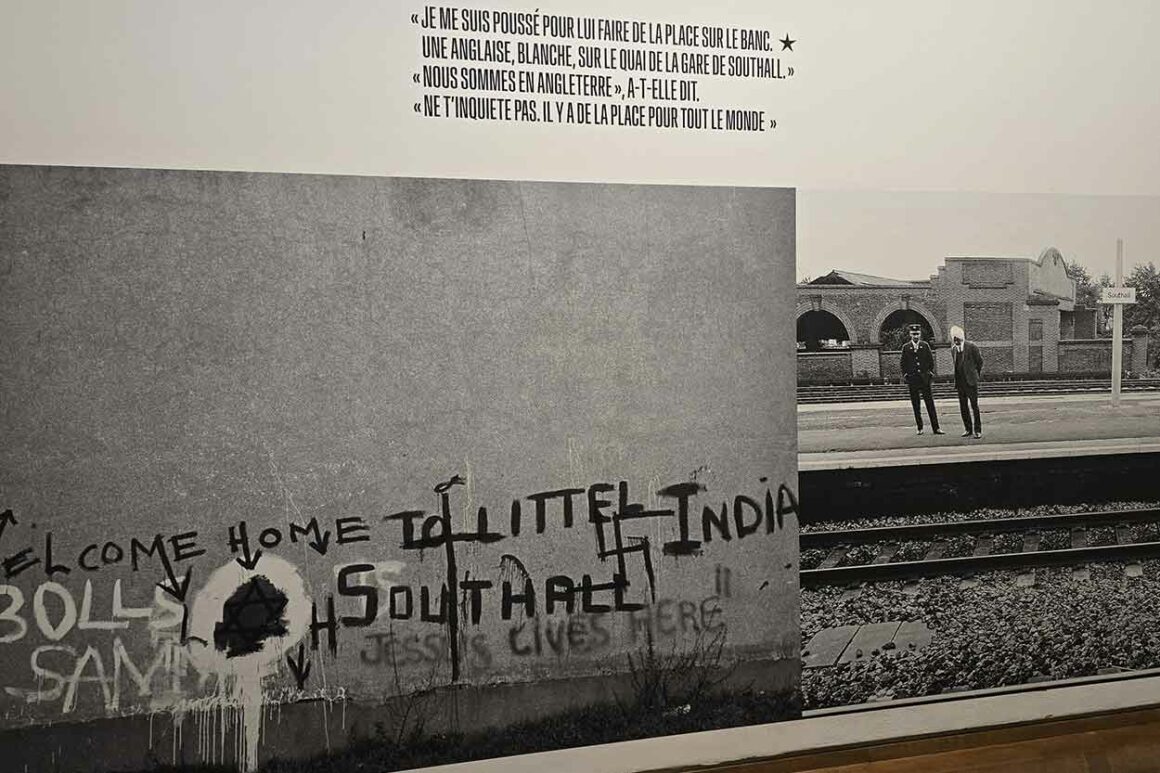 « JE ME SUIS POUSSÉ POUR LUI FAIRE DE LA PLACE SUR LE BANC.
UNE ANGLAISE, BLANCHE, SUR LE QUAI DE LA GARE DE SOUTHALL. »
« NOUS SOMMES EN ANGLETERRE », A-T-ELLE DIT.
« NE T'INQUIETE PAS. IL Y A DE LA PLACE POUR TOUT LE MONDE »
Southall
WELCOME HOME TO LITTEL INDIA
SOUTHALL
LIVES HERE
BOLLS